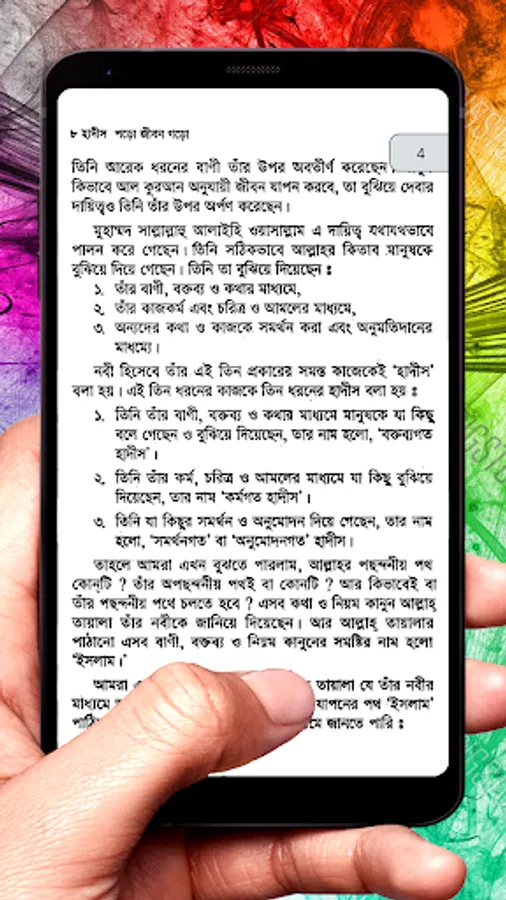 ৮ হাদীস পড়ো জীবন গড়ো
4
তিনি আরেক ধরনের বাণী তাঁর উপর অবতীর্ণ করেছেন।
কিভাবে আল কুরআন অনুযায়ী জীবন যাপন করবে, তা বুঝিয়ে দেবার
দায়িত্বও তিনি তাঁর উপর অর্পণ করেছেন।
মুহাম্মদ সাল্লাল্লাহু আলাইহি ওয়াসাল্লাম এ দায়িত্ব যথাযথভাবে
পালন করে গেছেন। তিনি সঠিকভাবে আল্লাহর কিতাব মানুষকে
বুঝিয়ে দিয়ে গেছেন। তিনি তা বুঝিয়ে দিয়েছেন ঃ
১. তাঁর বাণী, বক্তব্য ও কথার মাধ্যমে,
২. তাঁর কাজকর্ম এবং চরিত্র ও আমলের মাধ্যমে,
৩. অন্যদের কথা ও কাজকে সমর্থন করা এবং অনুমতিদানের
মাধ্যমে।
নবী হিসেবে তাঁর এই তিন প্রকারের সমস্ত কাজেকেই ‘হাদীস’
বলা হয়। এই তিন ধরনের কাজকে তিন ধরনের হাদীস বলা হয় ঃ
১. তিনি তাঁর বাণী, বক্তব্য ও কথার মাধ্যমে মানুষকে যা কিছু
বলে গেছেন ও বুঝিয়ে দিয়েছেন, তার নাম হলো, ‘বক্তব্যগত
হাদীস’।
২. তিনি তাঁর কর্ম, চরিত্র ও আমলের মাধ্যমে যা কিছু বুঝিয়ে
দিয়েছেন, তার নাম ‘কর্মগত হাদীস’।
৩. তিনি যা কিছুর সমর্থন ও অনুমোদন দিয়ে গেছেন, তার নাম
হলো, ‘সমর্থনগত’ বা ‘অনুমোদনগত’ হাদীস।
তাহলে আমরা এখন বুঝতে পারলাম, আল্লাহর পছন্দনীয় পথ
কোনটি ? তাঁর অপছন্দনীয় পথই বা কোনটি ? আর কিভাবেই বা
তাঁর পছন্দনীয় পথে চলতে হবে ? এসব কথা ও নিয়ম কানুন আল্লাহ্
তায়ালা তাঁর নবীকে জানিয়ে দিয়েছেন। আর আল্লাহ্ তায়ালার
পাঠানো এসব বাণী, বক্তব্য ও নিয়ম কানুনের সমষ্টির নাম হলো
‘ইসলাম।’
আমরা তায়ালা যে তাঁর নবীর
মাধ্যমে যাপনের পথ ‘ইসলাম’
জানতে পারি ঃ